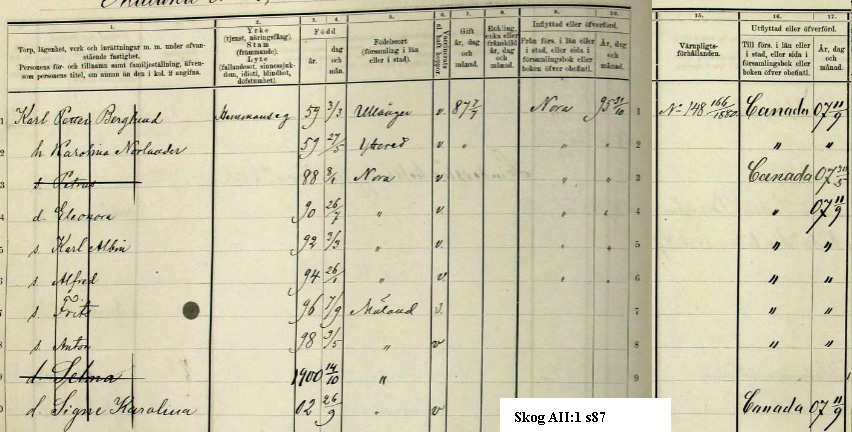 1.
Torp, lägenhet, verk och inrättningar m. m. under ofvan-
stående fastighet.
Personens för- och tillnamn samt familjeställning, äfven-
som personens titel, om annan än den i kol. 2 angifna.
2.
Yrke
(tjenst, näringsfång).
Stam
(främmande).
Lyte
(fallandesot, sinnessjuk-
dom, idioti, blindhet,
döfstumhet).
3. 4.
Född
år. dag och mån.
5.
Födelseort
(församling i län
eller i stad).
6.
7.
Gift
år, dag
och
månad.
8.
Enkling,
enka eller
frånskild
år, dag och
månad.
9. 10.
Inflyttad eller öfverförd.
Från förs. i län eller
i stad, eller sida i
församlingsbok eller
boken öfver obefintl.
År, dag
och
månad.
15.
Värnpligts-
förhållanden.
16. 17.
Utflyttad eller öfverförd.
Till förs. i län eller
i stad, eller sida i
församlingsbok eller
boken öfver obefintl.
År, dag
och
månad.
1 Karl Petter Berglund Hemmanseg 59 3/3 Ullånger v. 87 7/7 Nora 95 31/10 1 No 148 166/1880 Canada 07 11/9
2 h. Karolina Norlander 59 27/5 Yttered v. " " " 2 " "
3 s. Petrus 88 8/1 Nora v. " " 3 Canada 07 30/5
4 d. Eleonora 90 26/7 " v. " " 4 " 07 11/9
5 s. Karl Albin 92 3/3 " v. " " 5 " "
6 s. Alfred 94 26/1 " v. " " 6 " "
7 s. Frits 96 7/9 Måland v. 7 " "
8 s. Anton 98 3/5 " v 8 " "
9 d. Selma 1900 14/10 " 9
0 d. Signe Karolina 02 26/9 " v Canada 07 11/9
Skog AII:1 s87